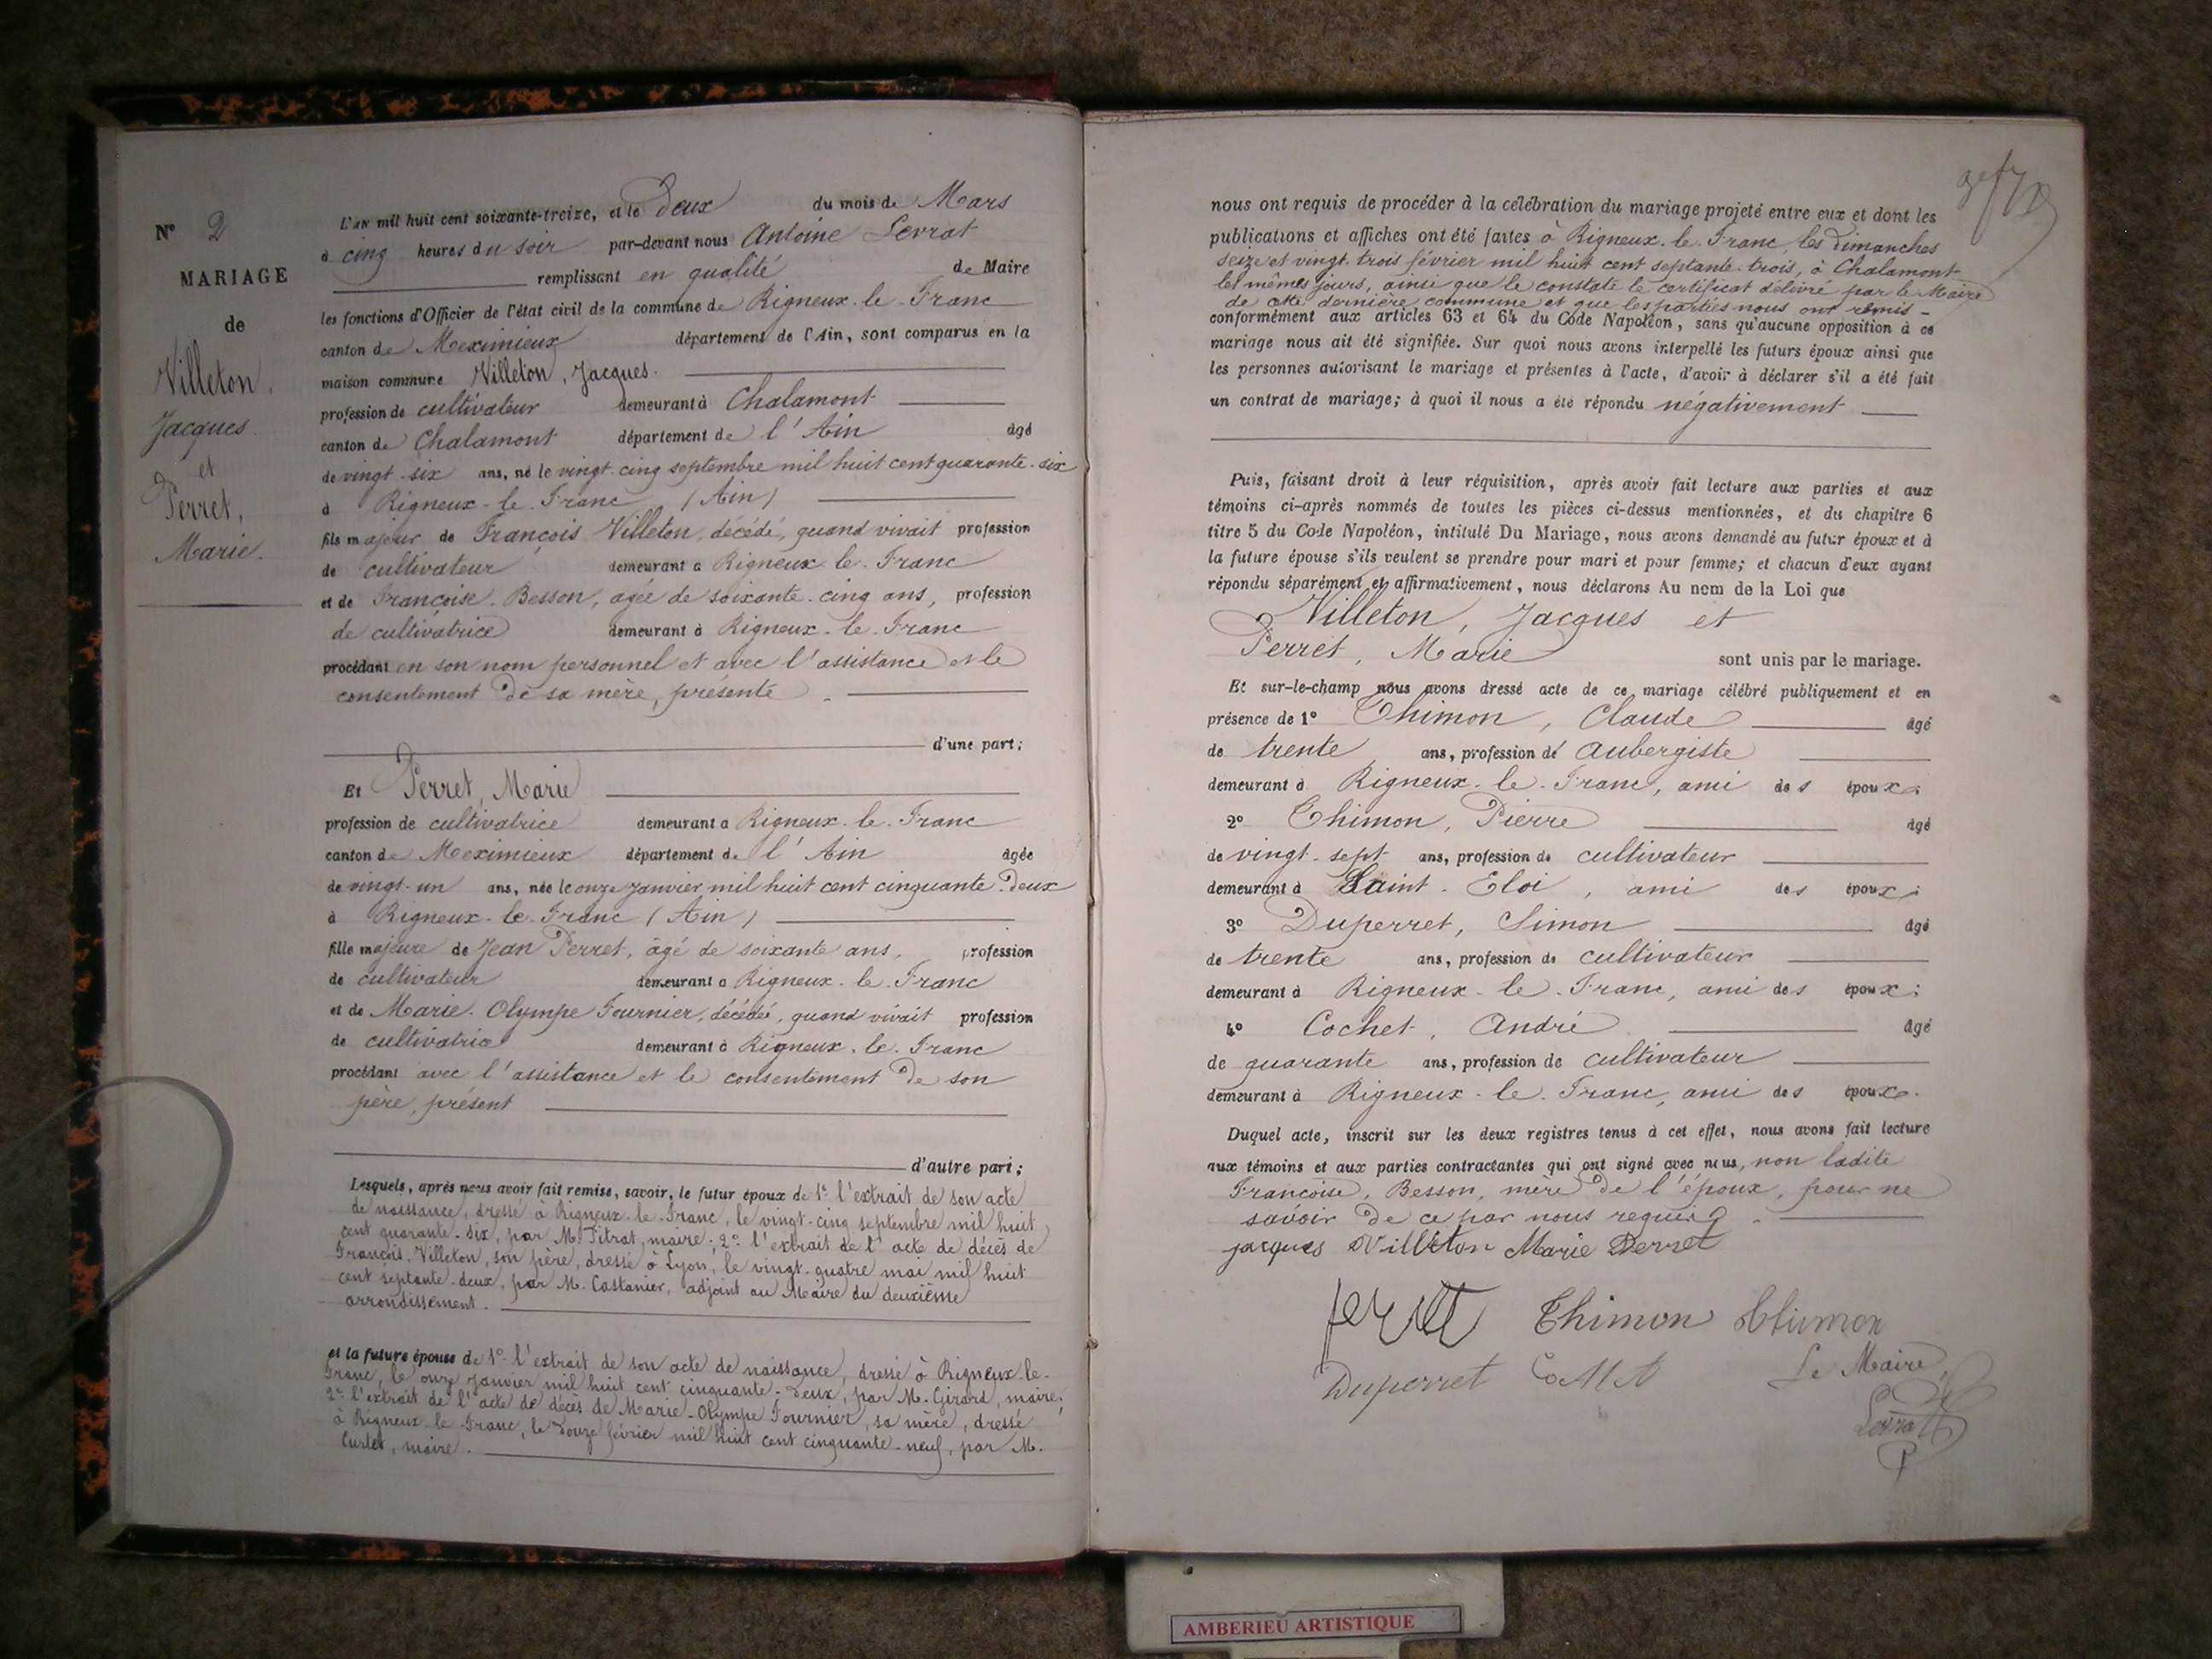 N° 2
MARIAGE
de
Villeton,
Jacques
et
Perret,
Marie.
L'an mil huit cent soixante-treize, et le Deux du mois de Mars
à cinq heures du soir par-devant nous Antoine Levrat
remplissant en qualité de Maire
les fonctions d'Officier de l'état civil de la commune de Rigneux-le-Franc
canton de Meximieux département de l'Ain, sont comparus en la
maison commune Villeton, Jacques.
profession de cultivateur demeurant à Chalamont
canton de Chalamont département de l'Ain âgé
de vingt-six ans, né le vingt-cinq septembre mil huit cent quarante-six
à Rigneux-le-Franc (Ain)
fils majeur de François Villeton, décédé, quand vivait profession
de cultivateur demeurant à Rigneux-le-Franc
et de Françoise Besson, agée de soixante-cinq ans, profession
de cultivatrice demeurant à Rigneux-le-Franc
procédant en son nom personnel et avec l'assistance et le
consentement de sa mère, présente.
d'une part;
Et Perret, Marie
profession de cultivatrice demeurant à Rigneux-le-Franc
canton de Meximieux département de l'Ain âgée
de vingt-un ans, née le onze janvier mil huit cent cinquante-deux
à Rigneux-le-Franc (Ain)
fille majeure de Jean Perret, âgé de soixante ans, profession
de cultivateur demeurant à Rigneux-le-Franc
et de Marie-Olympe Fournier, décédée, quand vivait profession
de cultivatrice demeurant à Rigneux-le-Franc
procédant avec l'assistance et le consentement de son
père, présent
d'autre part;
Lesquels, après nous avoir fait remise, savoir, le futur époux de 1° l'extrait de son acte
de naissance, dressé à Rigneux-le-Franc, le vingt-cinq septembre mil huit
cent quarante-six, par M. Pitrat, maire; 2° l'extrait de l'acte de décès de
François Villeton, son père, dressé à Lyon, le vingt-quatre mai mil huit
cent septante-deux, par M. Castanier, adjoint au Maire du deuxième
arrondissement.
et la future épouse de 1° l'extrait de son acte de naissance, dressé à Rigneux-le-
Franc, le onze janvier mil huit cent cinquante-deux, par M. Girard, maire;
2° l'extrait de l'acte de décès de Marie-Olympe Fournier, sa mère, dressé
à Rigneux-le-Franc, le douze février mil huit cent cinquante-neuf, par M.
Curlet, maire.
nous ont requis de procéder à la célébration du mariage projeté entre eux et dont les
publications et affiches ont été faites à Rigneux-le-Franc, les dimanches
seize et vingt-trois février mil huit cent septante-trois, à Chalamont
les mêmes jours, ainsi que le constate le certificat délivré par le Maire
de cette dernière commune et que les parties nous ont remis -
conformément aux articles 63 et 64 du Code Napoléon, sans qu'aucune opposition à ce
mariage nous ait été signifiée. Sur quoi nous avons interpellé les futurs époux ainsi que
les personnes autorisant le mariage et présentes à l'acte, d'avoir à déclarer s'il a été fait
un contrat de mariage; à quoi il nous a été répondu négativement
Puis, faisant droit à leur réquisition, après avoir fait lecture aux parties et aux
témoins ci-après nommés de toutes les pièces ci-dessus mentionnées, et du chapitre 6
titre 5 du Code Napoléon, intitulé Du Mariage, nous avons demandé au futur époux et à
la future épouse s'ils veulent se prendre pour mari et pour femme; et chacun d'eux ayant
répondu séparément et affirmativement, nous déclarons Au nom de la Loi que
Villeton, Jacques et
Perret, Marie sont unis par le mariage.
Et sur-le-champ nous avons dressé acte de ce mariage célébré publiquement et en
présence de 1° Thimon, Claude âgé
de trente ans, profession de Aubergiste
demeurant à Rigneux-le-Franc, ami des époux;
2° Thimon, Pierre âgé
de vingt-sept ans, profession de cultivateur
demeurant à Saint-Eloi, ami des époux;
3° Duperret, Simon âgé
de trente ans, profession de cultivateur
demeurant à Rigneux-le-Franc, ami des époux;
4° Cochet, André âgé
de quarante ans, profession de cultivateur
demeurant à Rigneux-le-Franc, ami des époux.
Duquel acte, inscrit sur les deux registres tenus à cet effet, nous avons fait lecture
aux témoins et aux parties contractantes qui ont signé avec nous, non ladite
Françoise Besson, mère de l'époux, pour ne
savoir de ce par nous requise.
jacques Villeton Marie Perret
perret Thimon Thimon
Duperret
Le Maire,
Levrat
AMBERIEU ARTISTIQUE